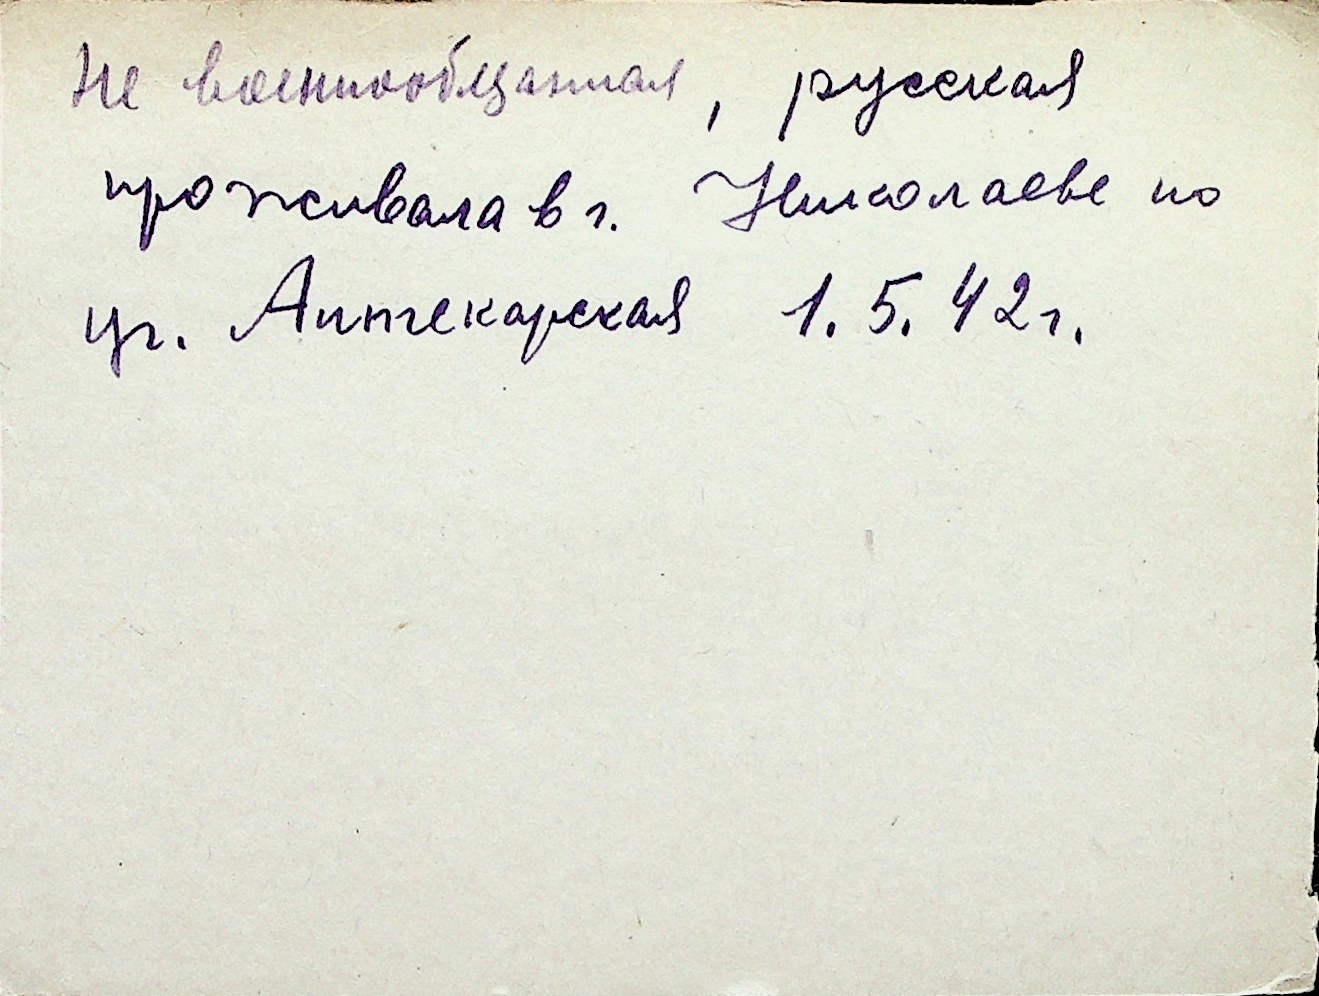 Не военнообязанная, русская
проживала в г. Николаеве по
ул. Аптекарская 1.5.42г.